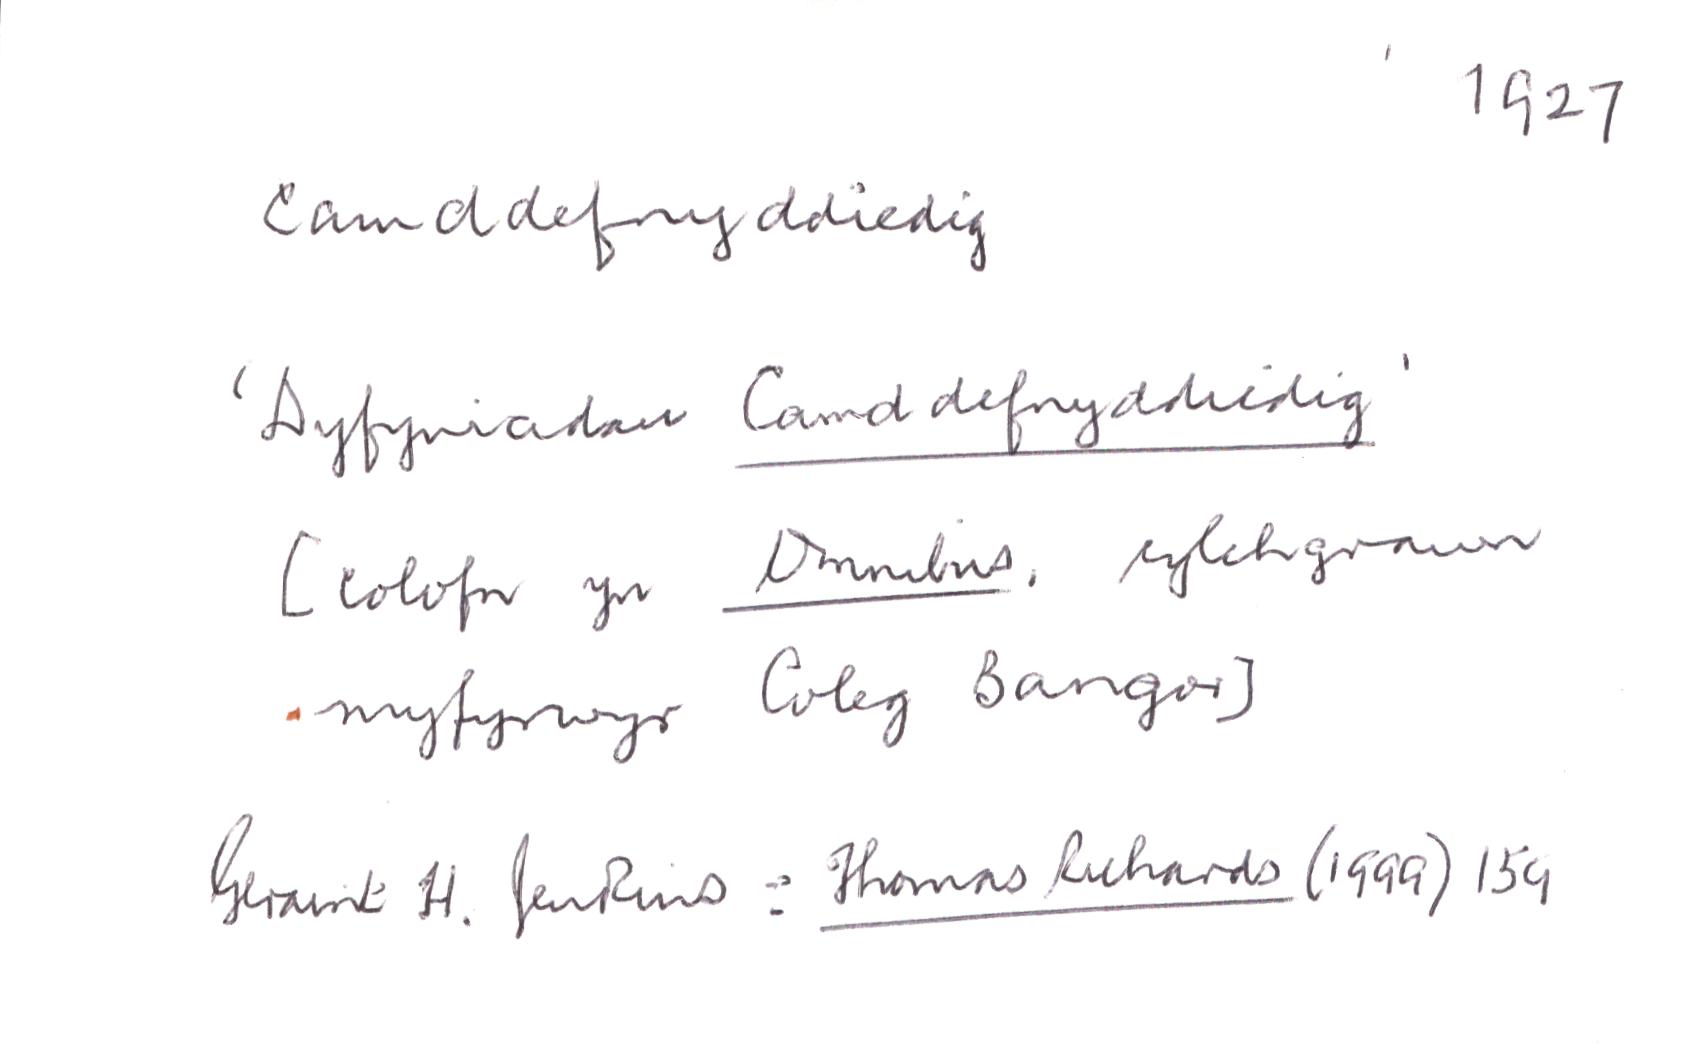 1927
camddefnyddiedig
'Dyfyniadau Camddefnyddiedig'
[colofn yn Omnibus, cylchgrawn
myfyrwyr Coleg Bangor]
Geraint H. Jenkins : Thomas Richards (1999) 159